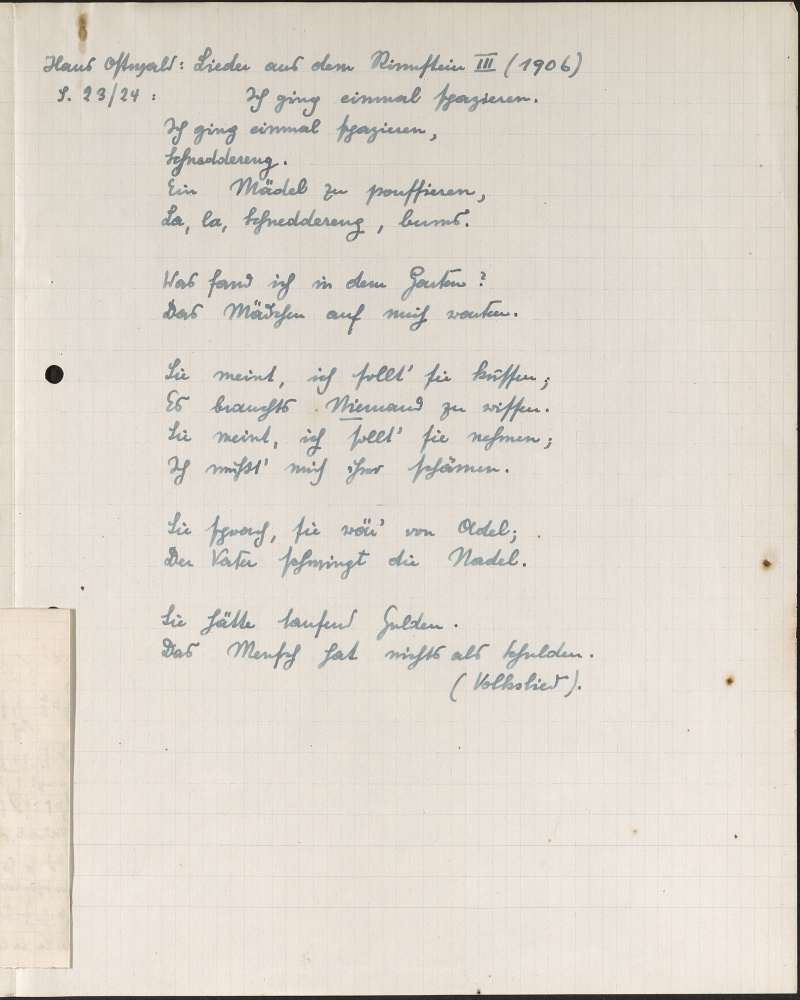 Hans Ostwald: Lieder aus dem Rinnstein III (1906)
S. 23/24: Ich ging einmal spazieren.
Ich ging einmal spazieren,
Schneddereng.
Ein Mädel zu poussieren,
La, la, Schneddereng, bums.
Was fand ich in dem Garten?
Das Mädchen auf mich warten.
Sie meint, ich sollt' sie küssen;
Es brauchts Niemand zu wissen.
Sie meint, ich sollt' sie nehmen;
Ich müsst' mich ihrer schämen.
Sie sprach, sie wär' von Adel;
Der Vater schwingt die Nadel.
Sie hätte tausend Gulden.
Das Mensch hat nichts als Schulden.
(Volkslied).